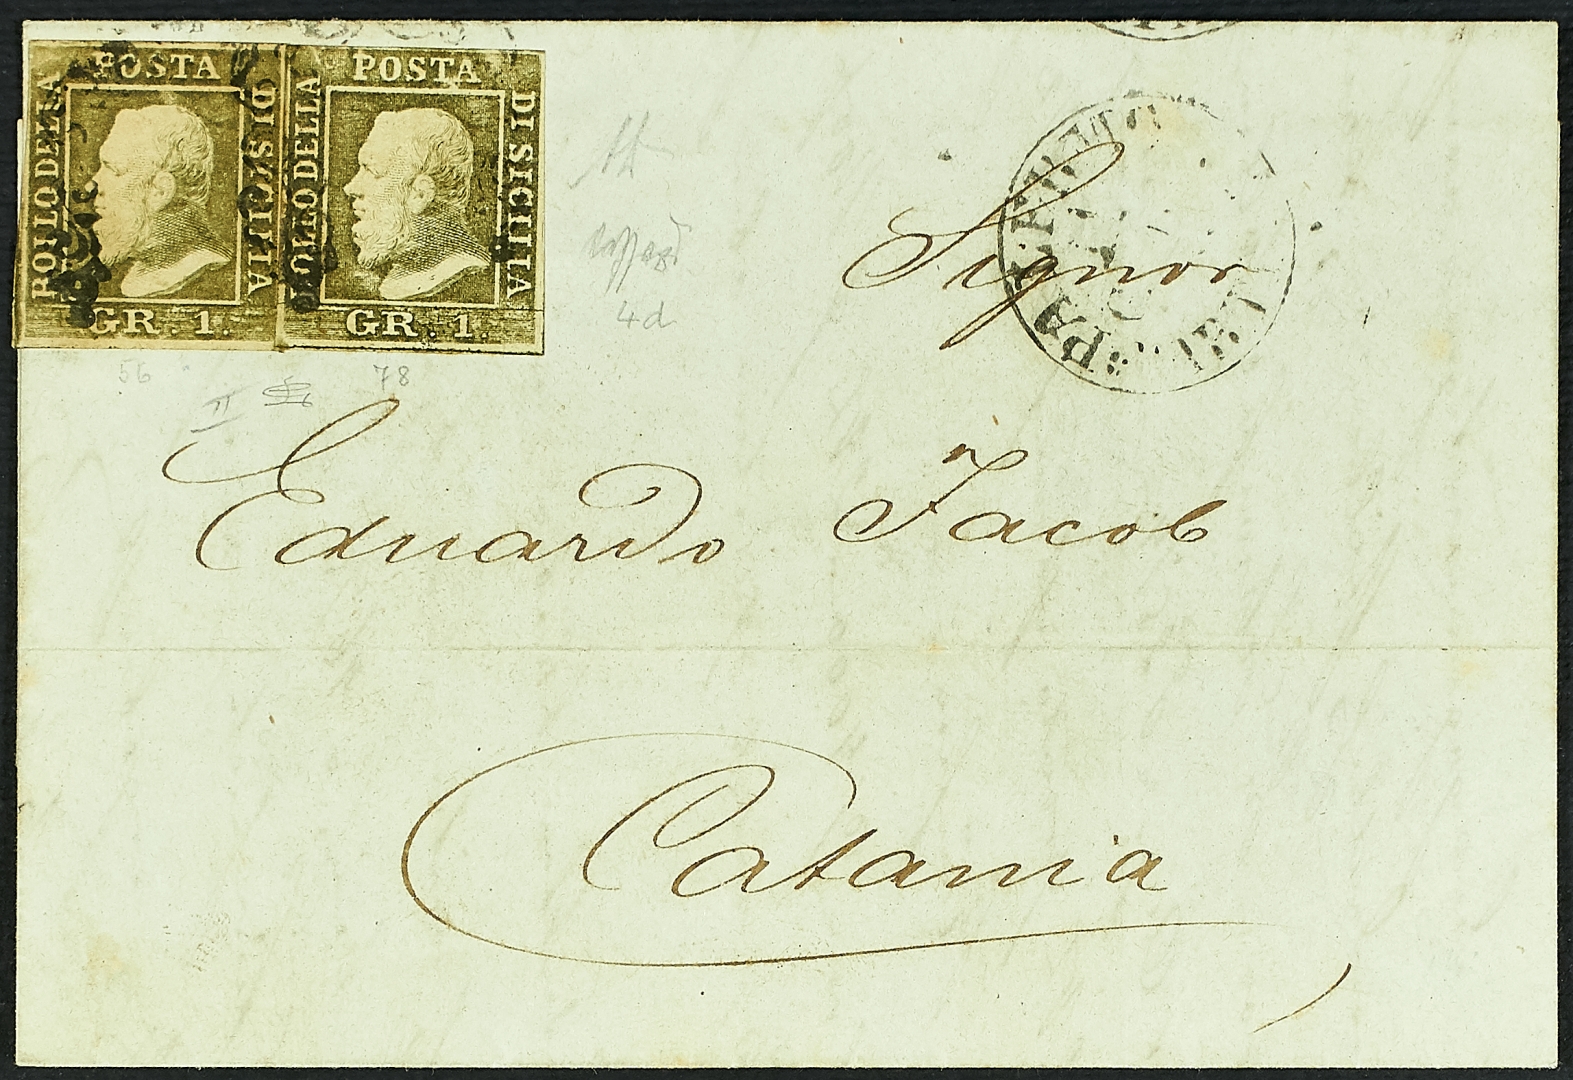 POSTA
BOLLO DELLA
DI SICILIA
GR. 1.
POSTA
BOLLO DELLA
DI SICILIA
GR. 1.
4d
56
78
II
Signor
Eduardo Jacob
Catania